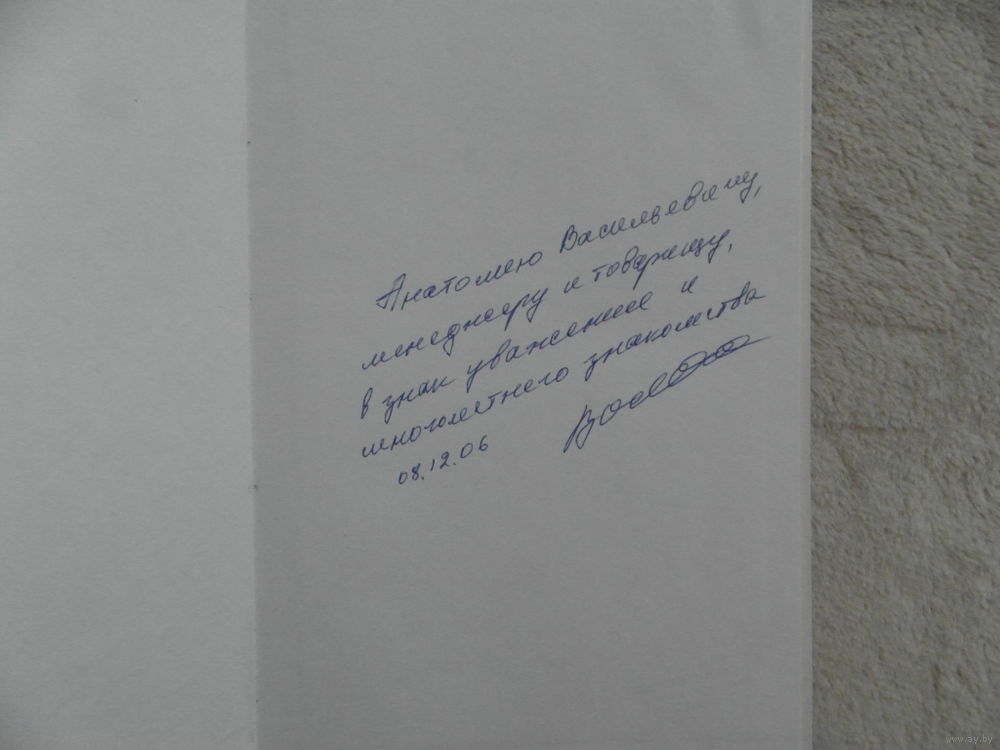 Анатолию Васильевичу,
менеджеру и товарищу,
в знак уважения и
многолетнего знакомства
08.12.06
www.ay.by